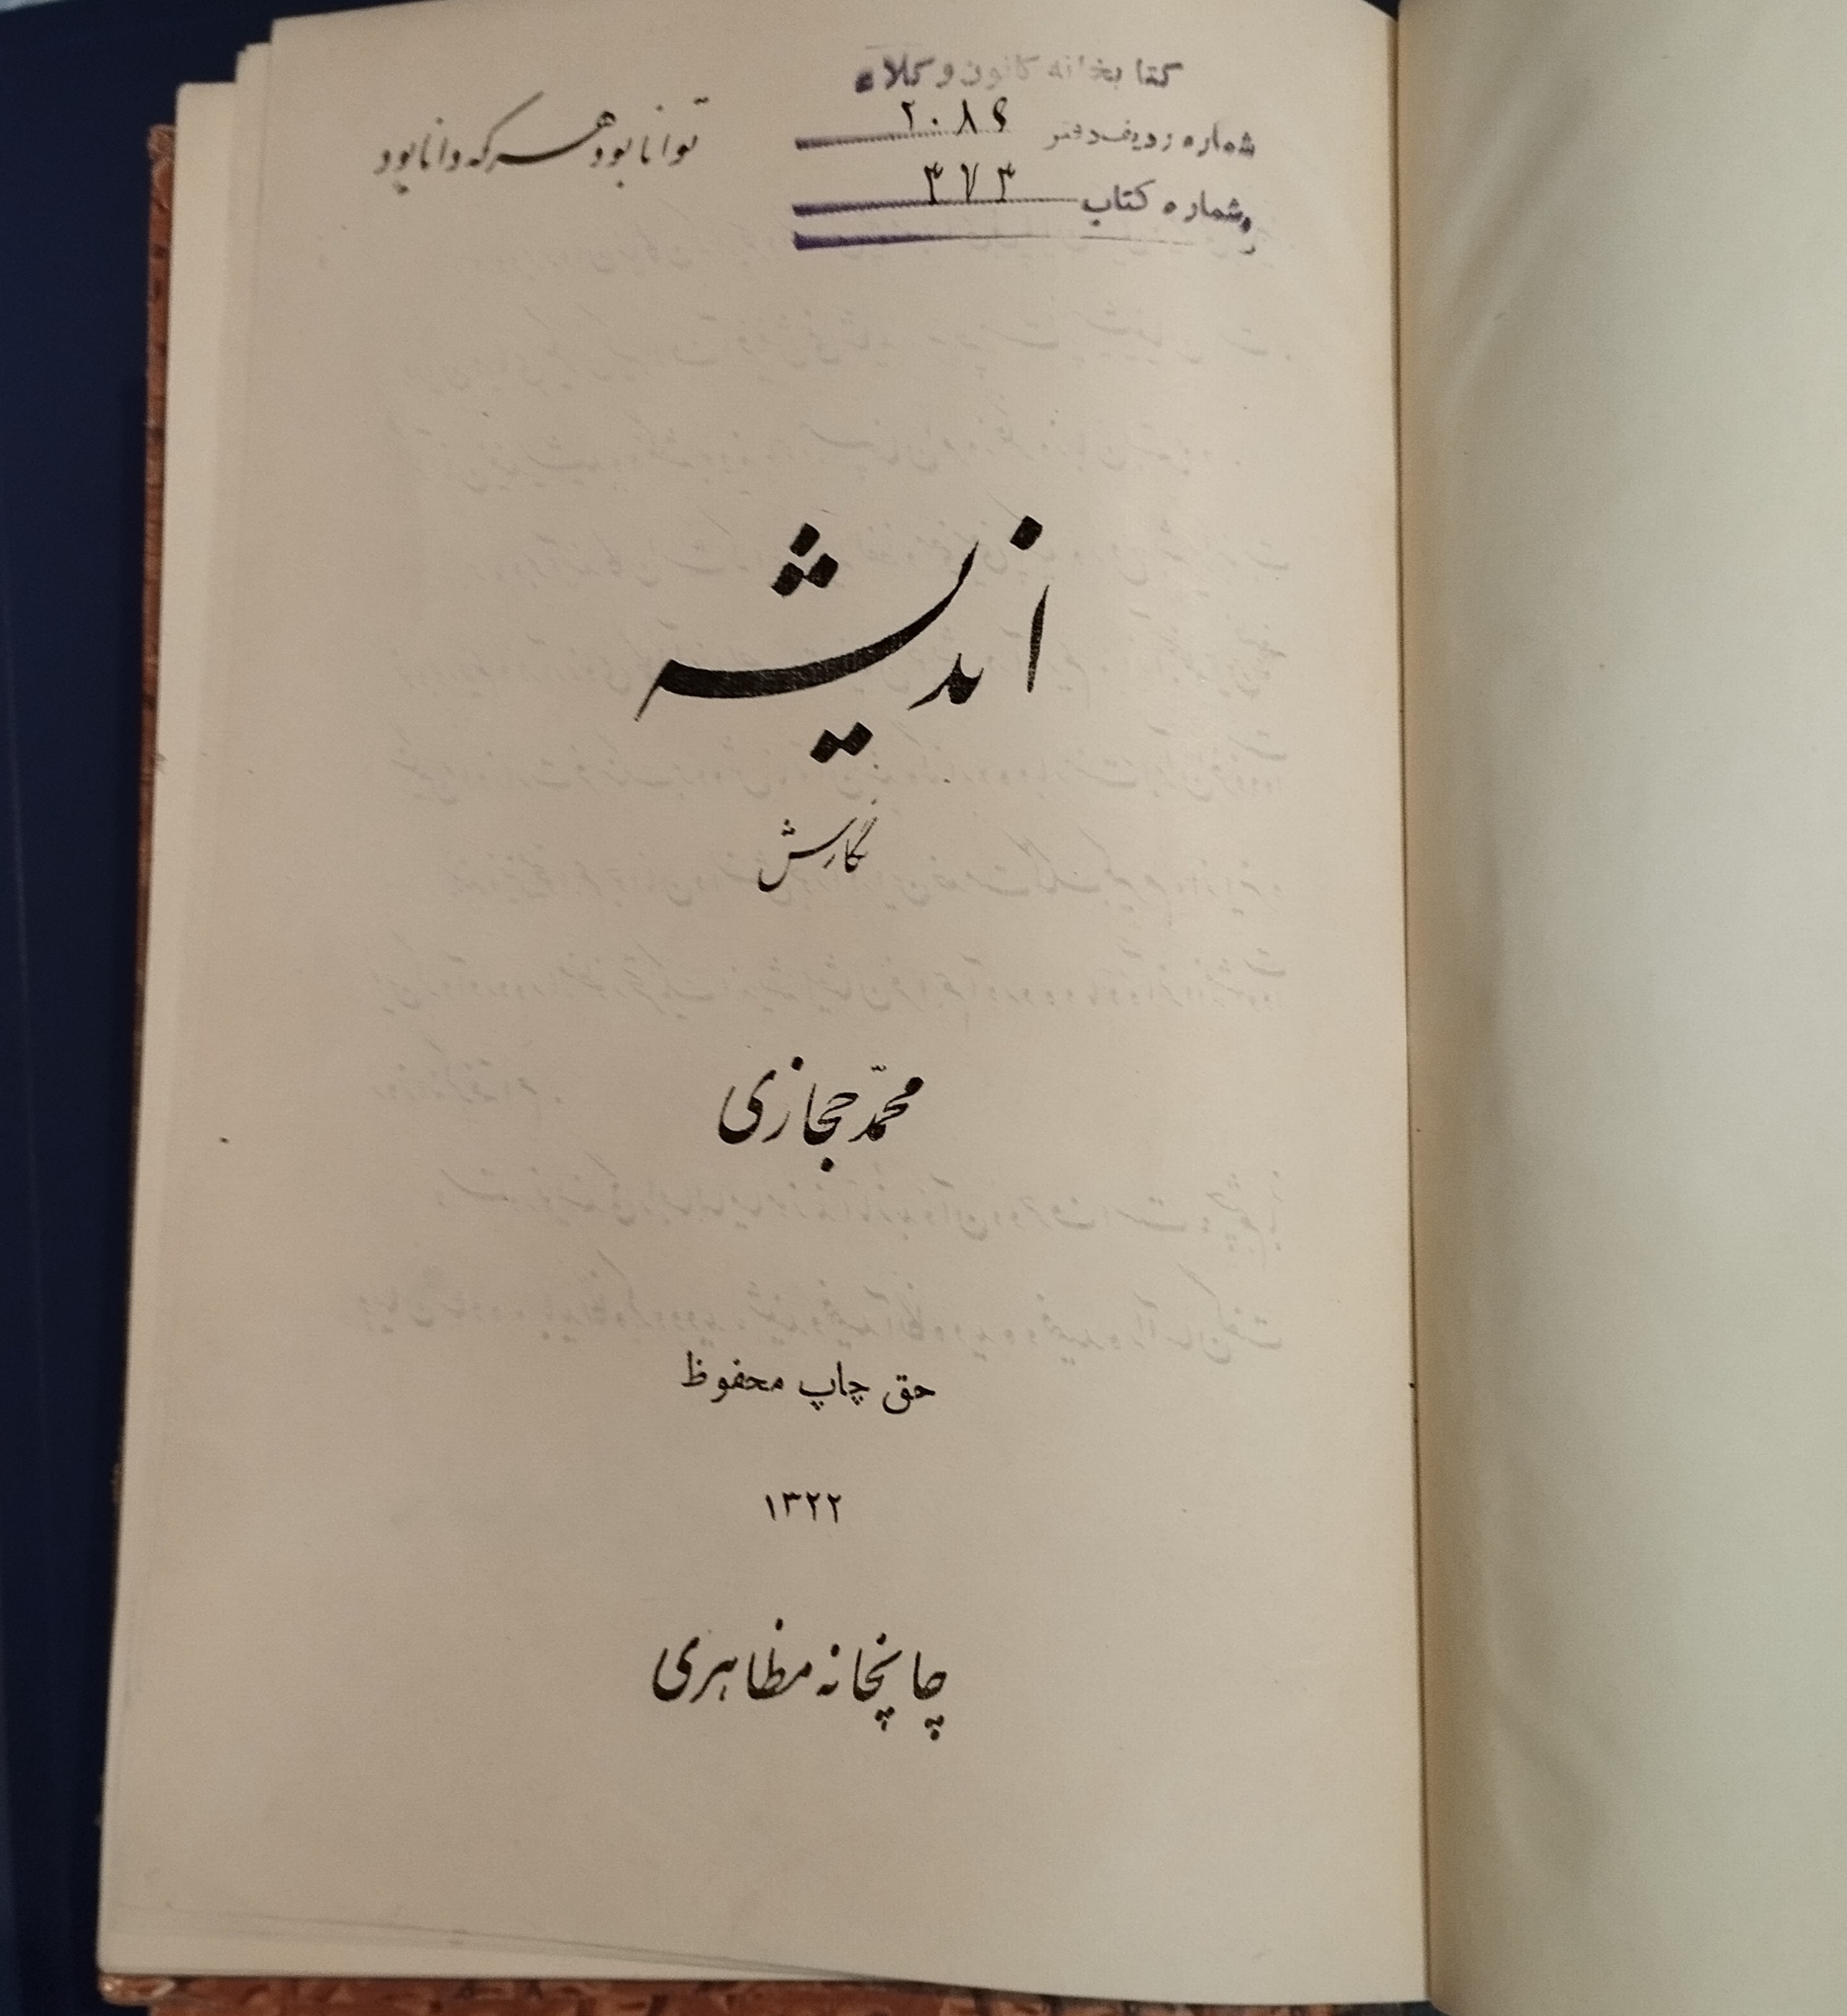 کتابخانه کانون وکلاء
شماره ردیف دفتر ۲۰۸۶
شماره کتاب ۳۷۳
توانا بود هر که دانا بود
اندیشه
نگارش
محمّد حجازی
حق چاپ محفوظ
۱۳۲۲
چاپخانه مظاهری